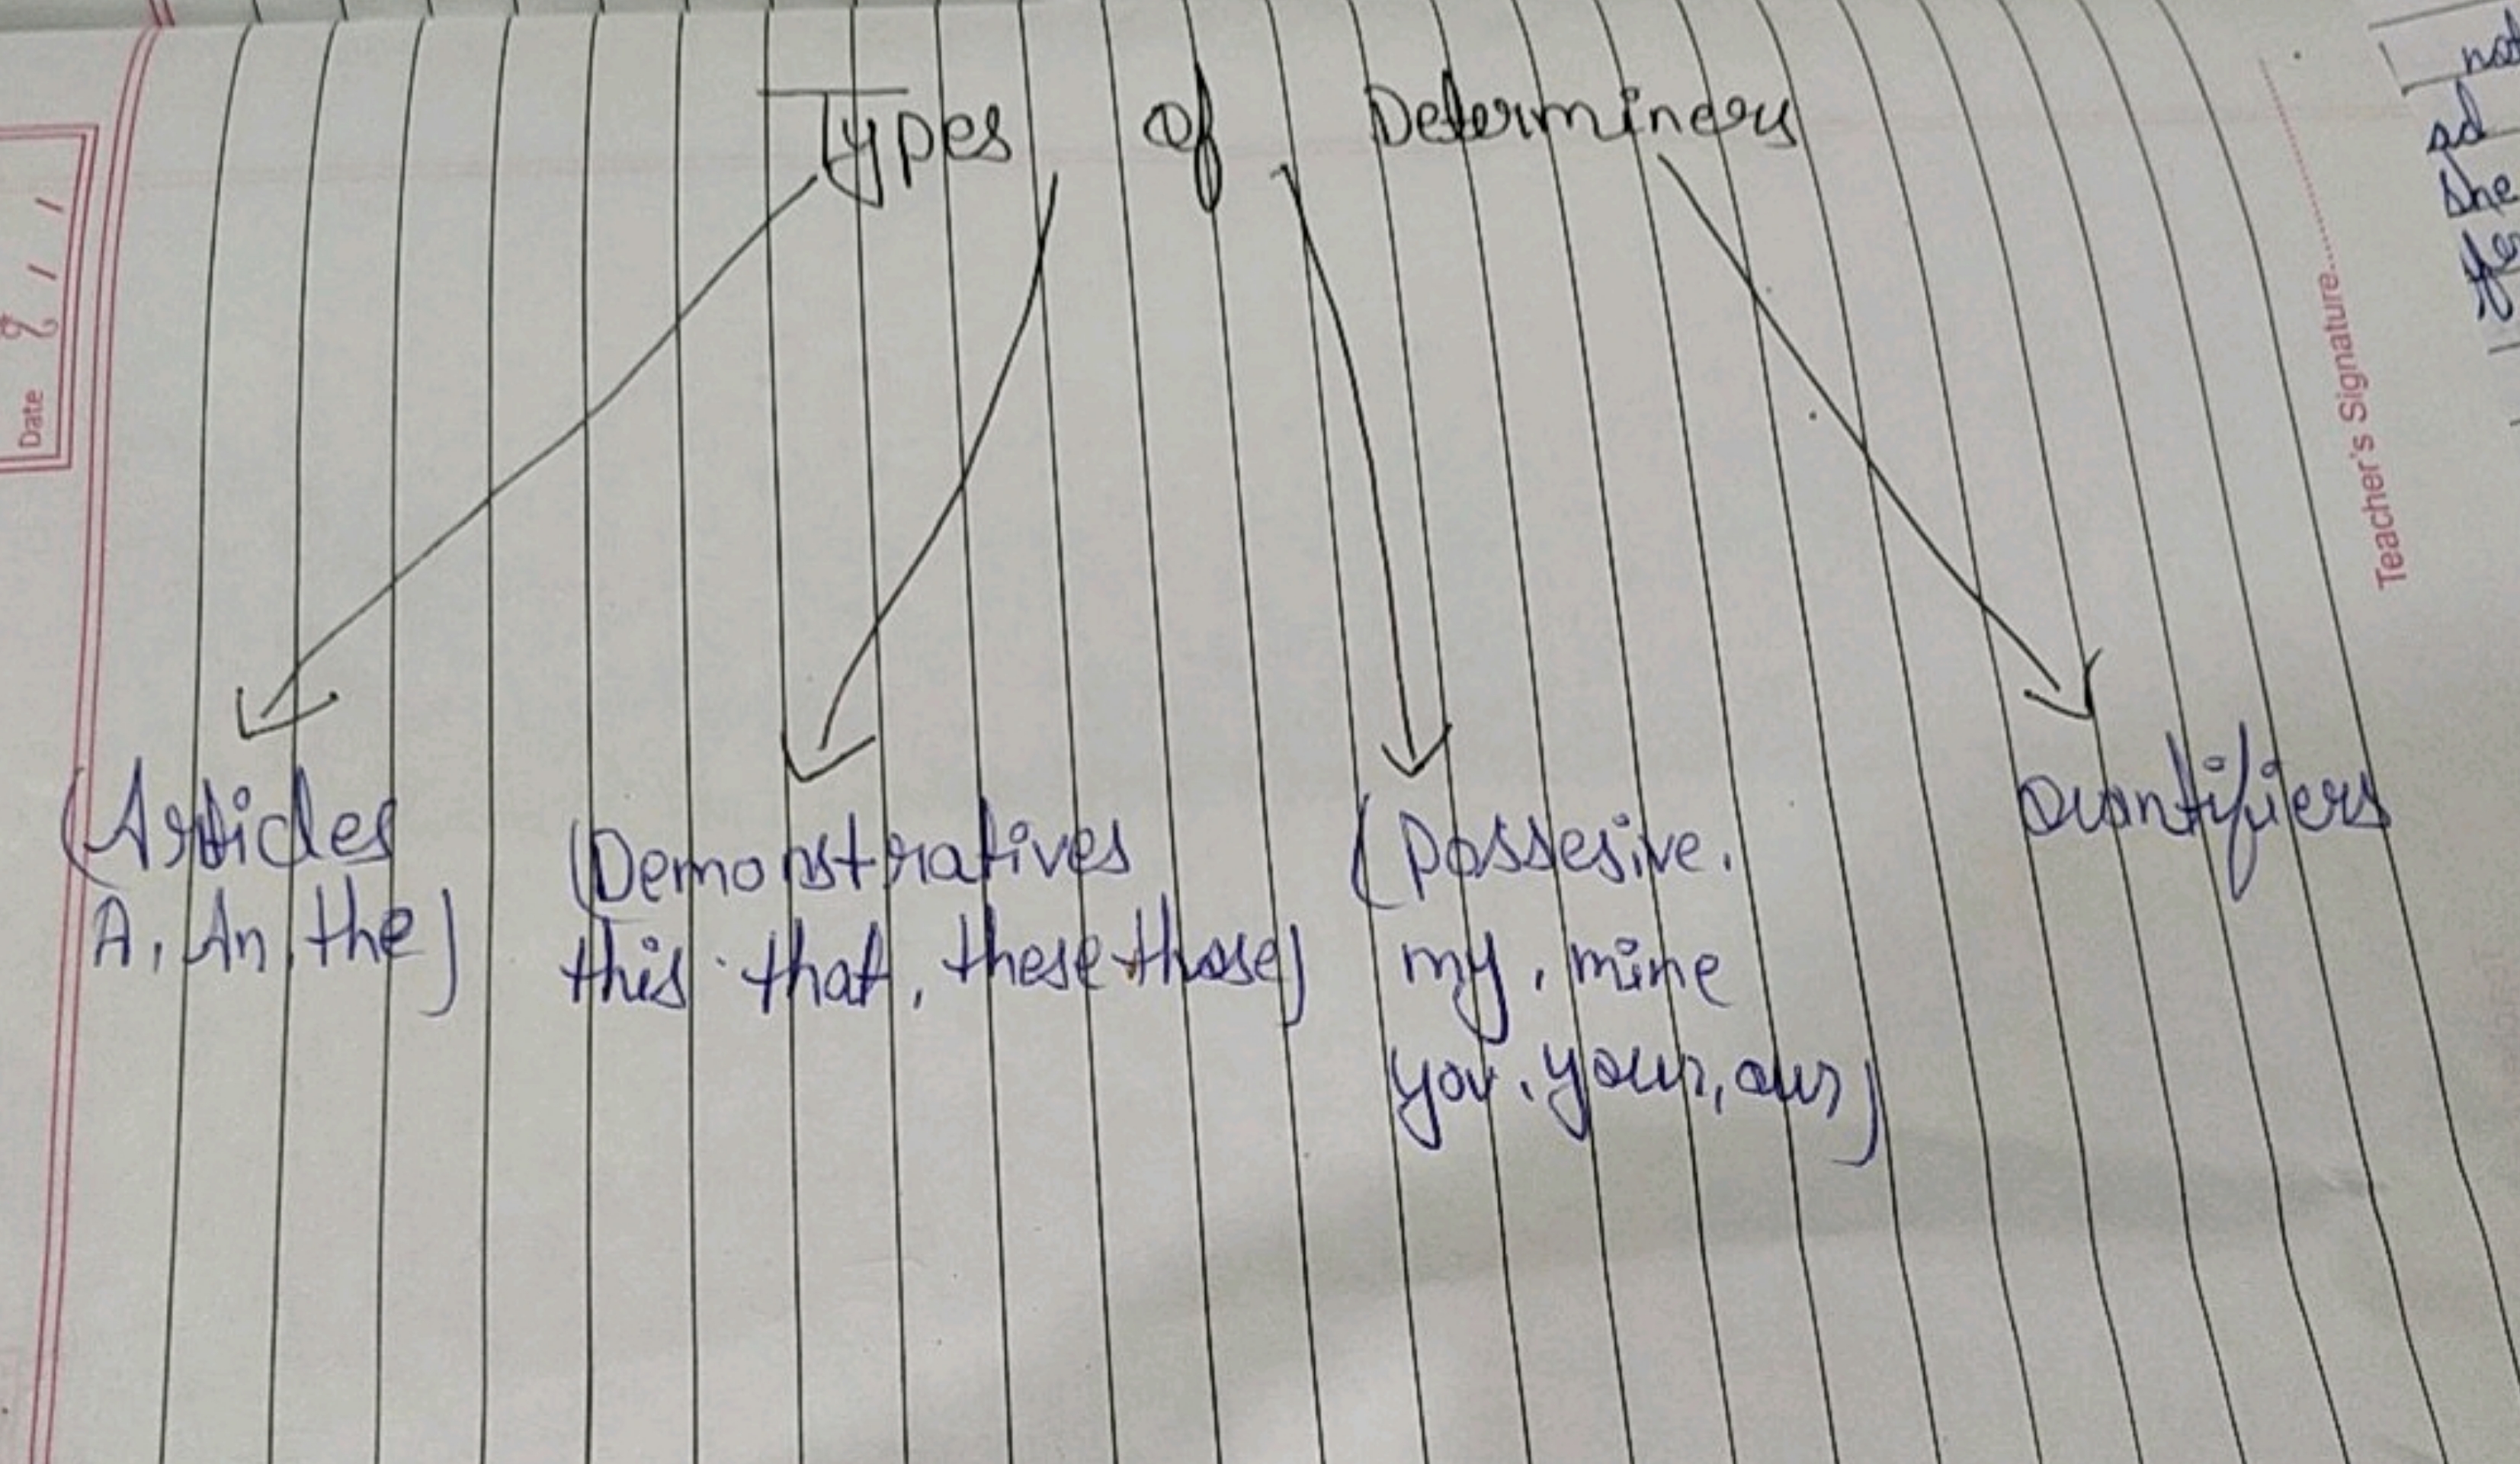 Types of Determiners
(Articles
A, An, the)
(Demonstratives
this. that, these those)
(Possesive.
my, mine
you, your, our)
Quantifiers
Date
Teacher's Signature
not
ad
she